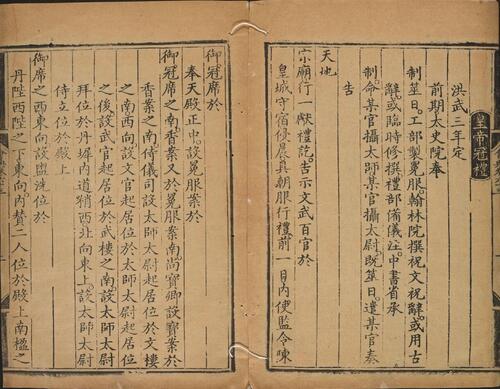 皇帝冠禮
洪武三年定
前期太史院奉
制筮日。工部製冕服。翰林院撰祝文祝辭。或用古
辭。或臨時修撰。禮部備儀注。中書省承
制。命某官攝太師某官攝太尉。既筮日。遣某官奏
告
天地
宗廟行一獻禮訖。告示文武百官於
皇城守宿侵晨具朝服行禮前一日內使監令陳
御冠席於
奉天殿正中。設冕服案於
御冠席之南。香案又於冕服案南。尚寶卿設寶案於
香案之南。侍儀司設太師太尉起居位於文樓
之南西向。設文官起居位於太師太尉起居位
之後。設武官起居位於武樓之南。設太師太尉
拜位於丹墀內道稍西北向東上。設太師太尉
侍立位於殿上
御席之西東向設盥洗位於
丹陛西陛之下東向內贊二人位於殿上南楹之